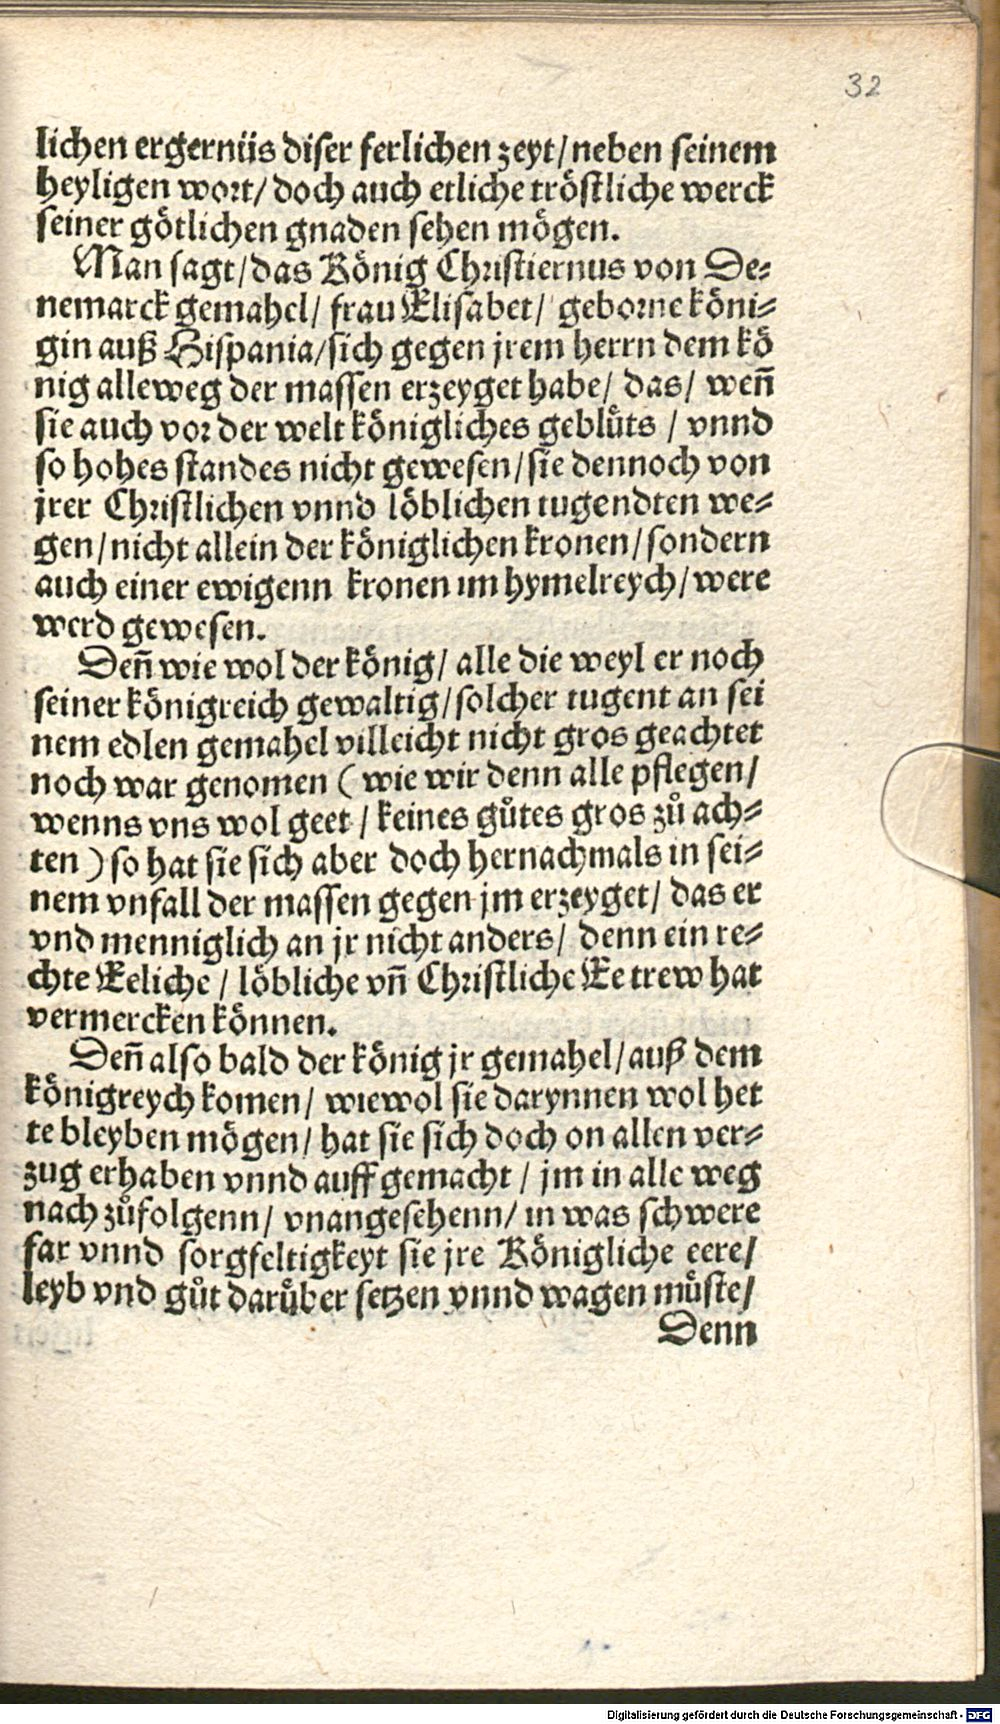 32
lichen ergernüs diser ferlichen zeyt/ neben seinem
heyligen wort/ doch auch etliche tröstliche werck
seiner götlichen gnaden sehen mögen.
Man sagt/ das König Christiernus von De⸗
nemarck gemahel/ frau Elisabet/ geborne köni⸗
gin auß Hispania/ sich gegen jrem herrn dem kö
nig alleweg der massen erzeyget habe/ das/ weñ
sie auch vor der welt königliches geblůts / vnnd
so hohes standes nicht gewesen/ sie dennoch von
jrer Christlichen vnnd löblichen tugendten we⸗
gen/ nicht allein der königlichen kronen/ sondern
auch einer ewigenn kronen im hymelreych/ were
werd gewesen.
Deñ wie wol der könig/ alle die weyl er noch
seiner königreich gewaltig/ solcher tugent an sei
nem edlen gemahel villeicht nicht gros geachtet
noch war genomen ( wie wir denn alle pflegen/
wenns vns wol geet / keines gůtes gros zů ach⸗
ten ) so hat sie sich aber doch hernachmals in sei⸗
nem vnfall der massen gegen jm erzeyget/ das er
vnd menniglich an jr nicht anders/ denn ein re⸗
chte Eeliche / löbliche vñ Christliche Ee trew hat
vermercken können.
Deñ also bald der könig jr gemahel/ auß dem
königreych komen/ wiewol sie darynnen wol het
te bleyben mögen/ hat sie sich doch on allen ver⸗
zug erhaben vnnd auff gemacht / jm in alle weg
nach zůfolgenn/ vnangesehenn/ in was schwere
far vnnd sorgfeltigkeyt sie jre Königliche eere/
leyb vnd gůt darůber setzen vnnd wagen můste/
Denn
Digitalisierung gefördert durch die Deutsche Forschungsgemeinschaft - DFG